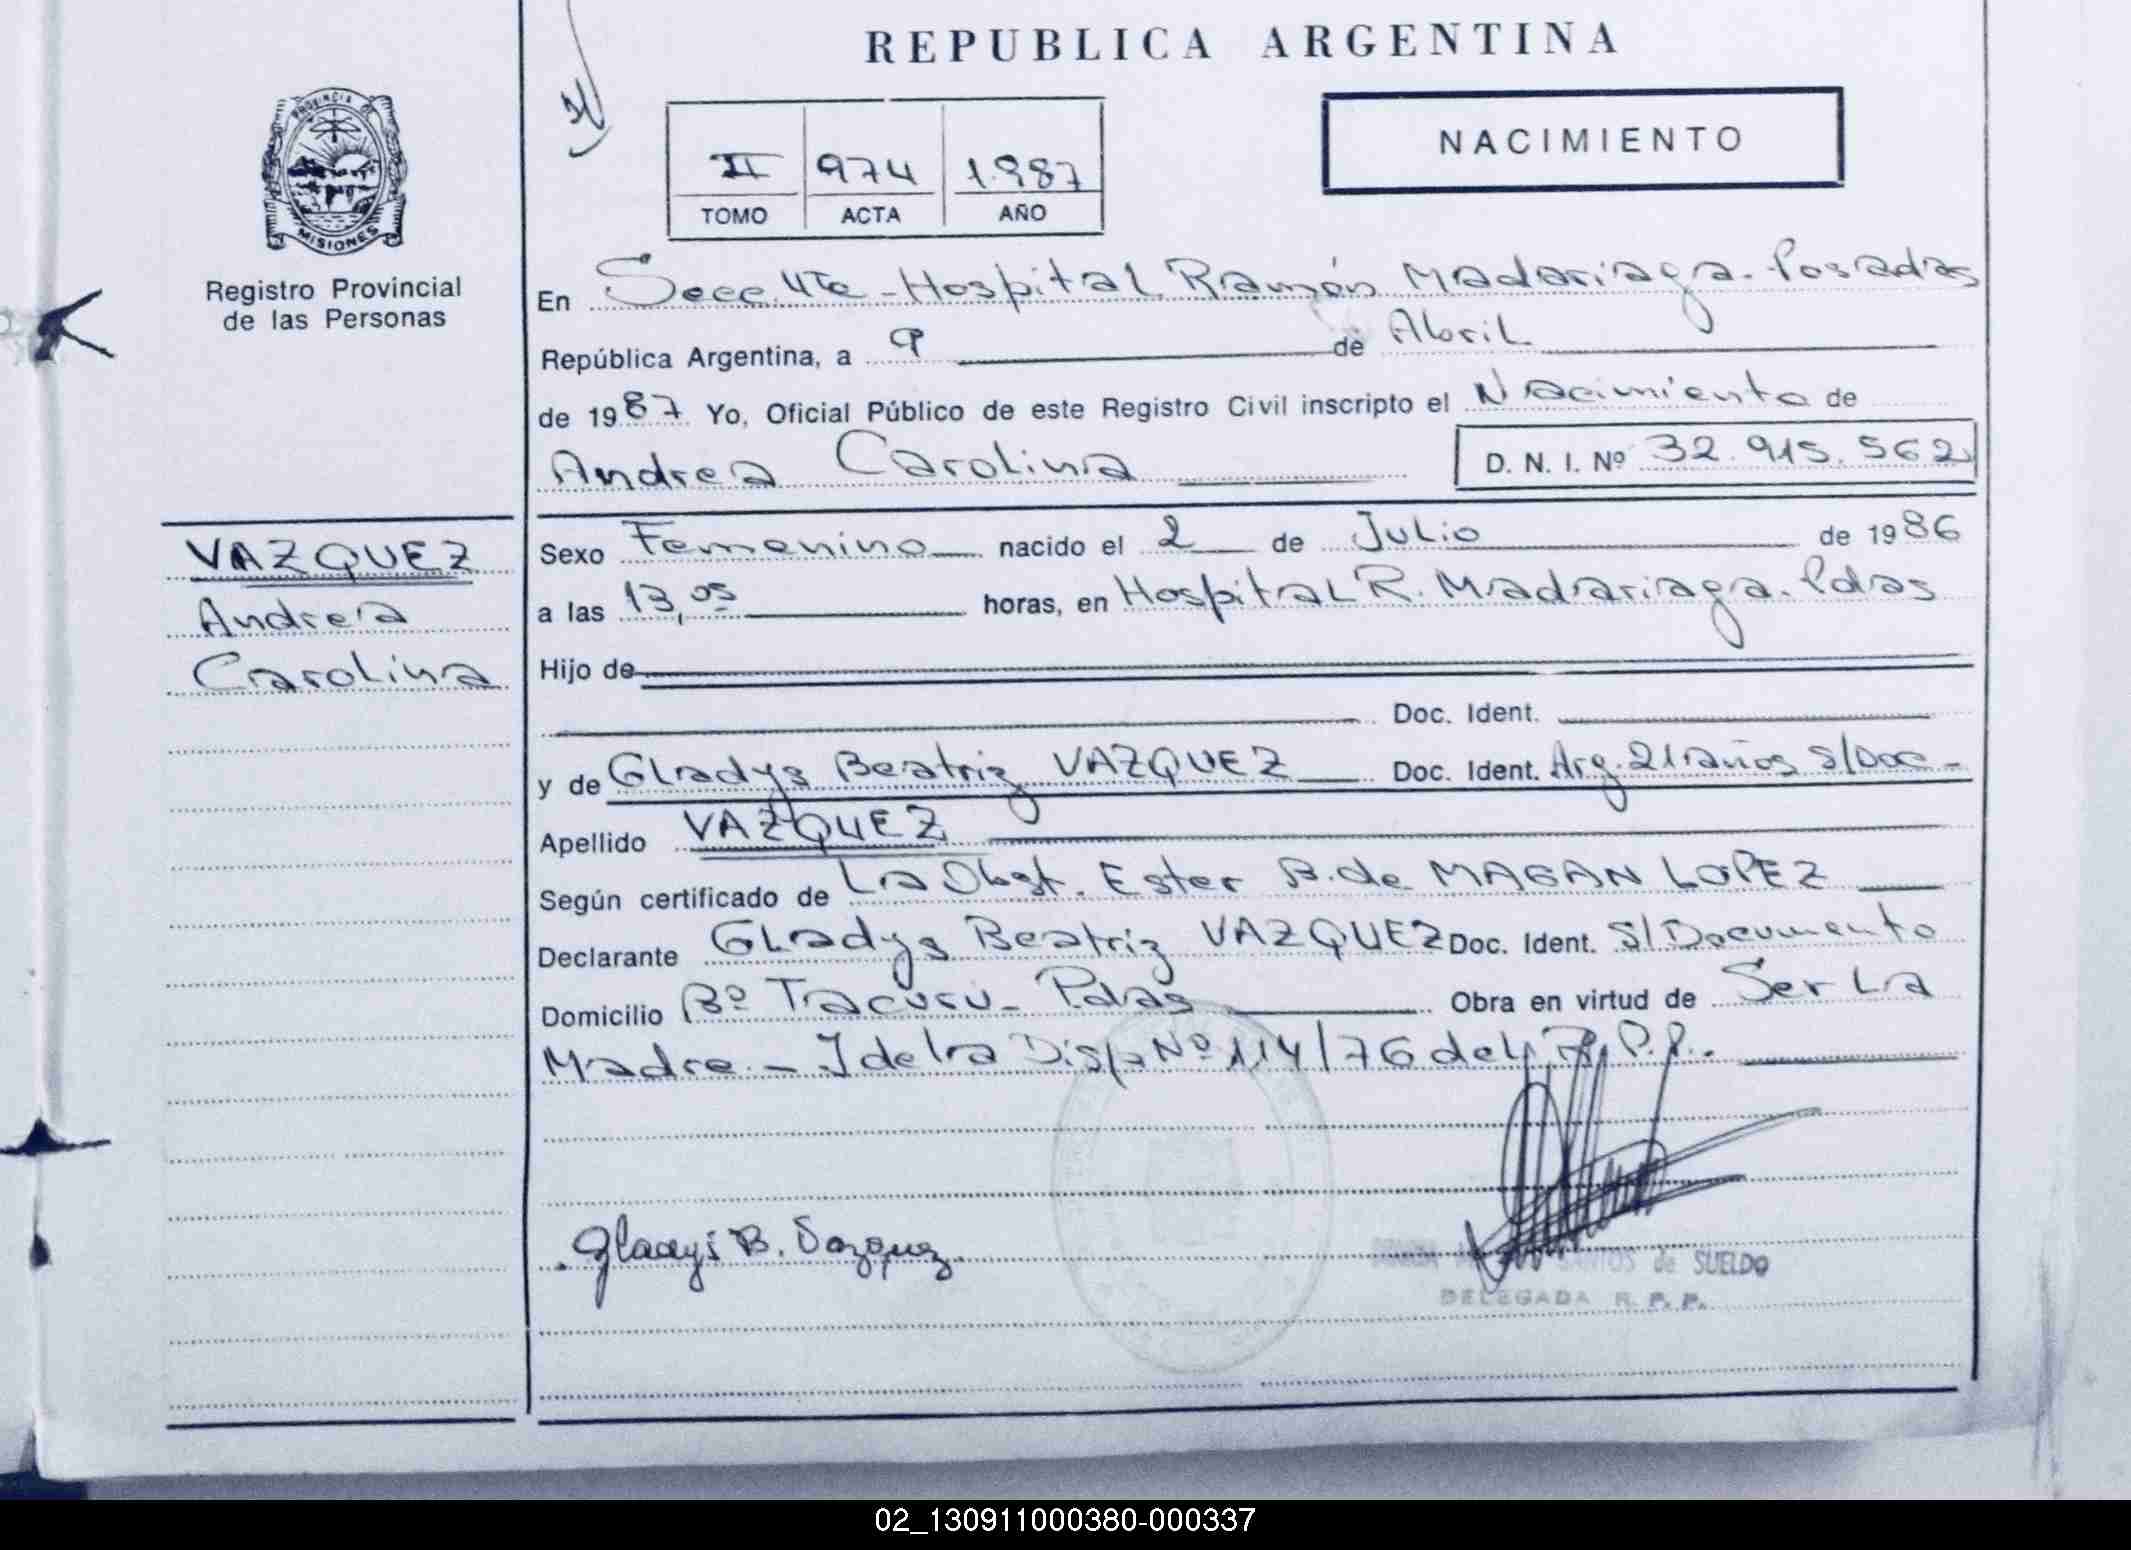 REPUBLICA ARGENTINA
PROVINCIA DE
MISIONES
Registro Provincial
de las Personas
II 974 1.987
TOMO ACTA AÑO
NACIMIENTO
En Hospital Ramón Madariaga. Posadas
República Argentina, a 9 de Abril
de 1987 Yo, Oficial Público de este Registro Civil inscripto el Nacimiento de
Andrea Carolina D. N. I. Nº 32.915.562
VAZQUEZ
Andrea
Carolina
Sexo Femenino nacido el 2 de Julio de 1986
a las 13,05 horas, en Hospital R. Madariaga. Pdas
Hijo de
Doc. Ident.
y de Gladys Beatriz VAZQUEZ Doc. Ident. Arg. 21 años S/Doc-
Apellido VAZQUEZ
Según certificado de La Obst. Ester B. de MAGAN LOPEZ
Declarante Gladys Beatriz VAZQUEZ Doc. Ident. S/Documento
Domicilio Bº Tacurú - Pdas Obra en virtud de Ser La
Madre - de la Disp. Nº 114/76 del R.P.P.
Gladys B. Vazquez.
SANTOS de SUELDO
DELEGADA R. P. P.
02_130911000380-000337